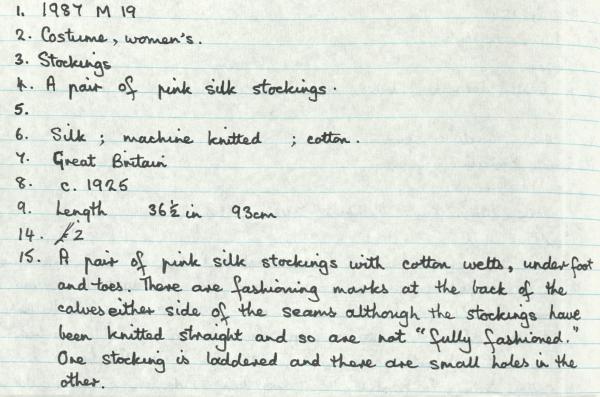 1. 1987 M 19
2. Costume, women's.
3. Stockings
4. A pair of pink silk stockings.
5.
6. Silk ; machine knitted ; cotton.
7. Great Britain
8. c. 1925
9. Length 36½ in 93cm
14. £2
15. A pair of pink silk stockings with cotton welts, under foot
and toes. There are fashioning marks at the back of the
calves either side of the seams although the stockings have
been knitted straight and so are not "fully fashioned."
One stocking is laddered and there are small holes in the
other.